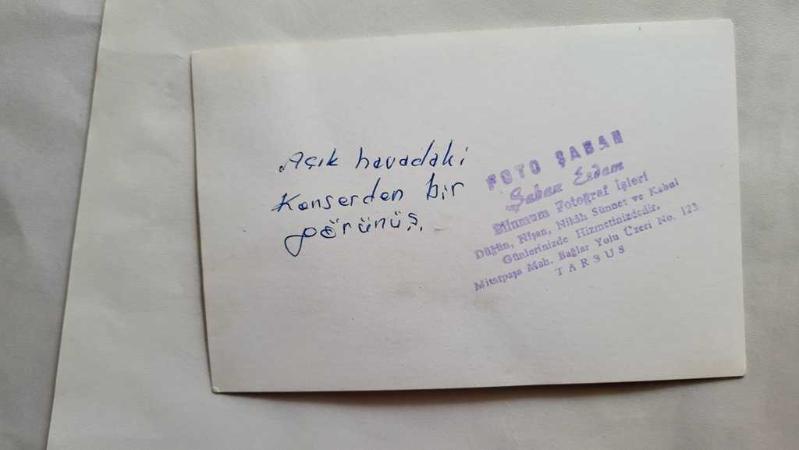 Açık havadaki
Konserden bir
görünüş.
FOTO ŞABAN
Şaban Erdem
Bilumum Fotoğraf İşleri
Düğün, Nişan, Nikâh Sünnet ve Kabul
Günlerinizde Hizmetinizdedir.
Mitatpaşa Mah. Bağlar Yolu Üzeri No. 123
TARSUS